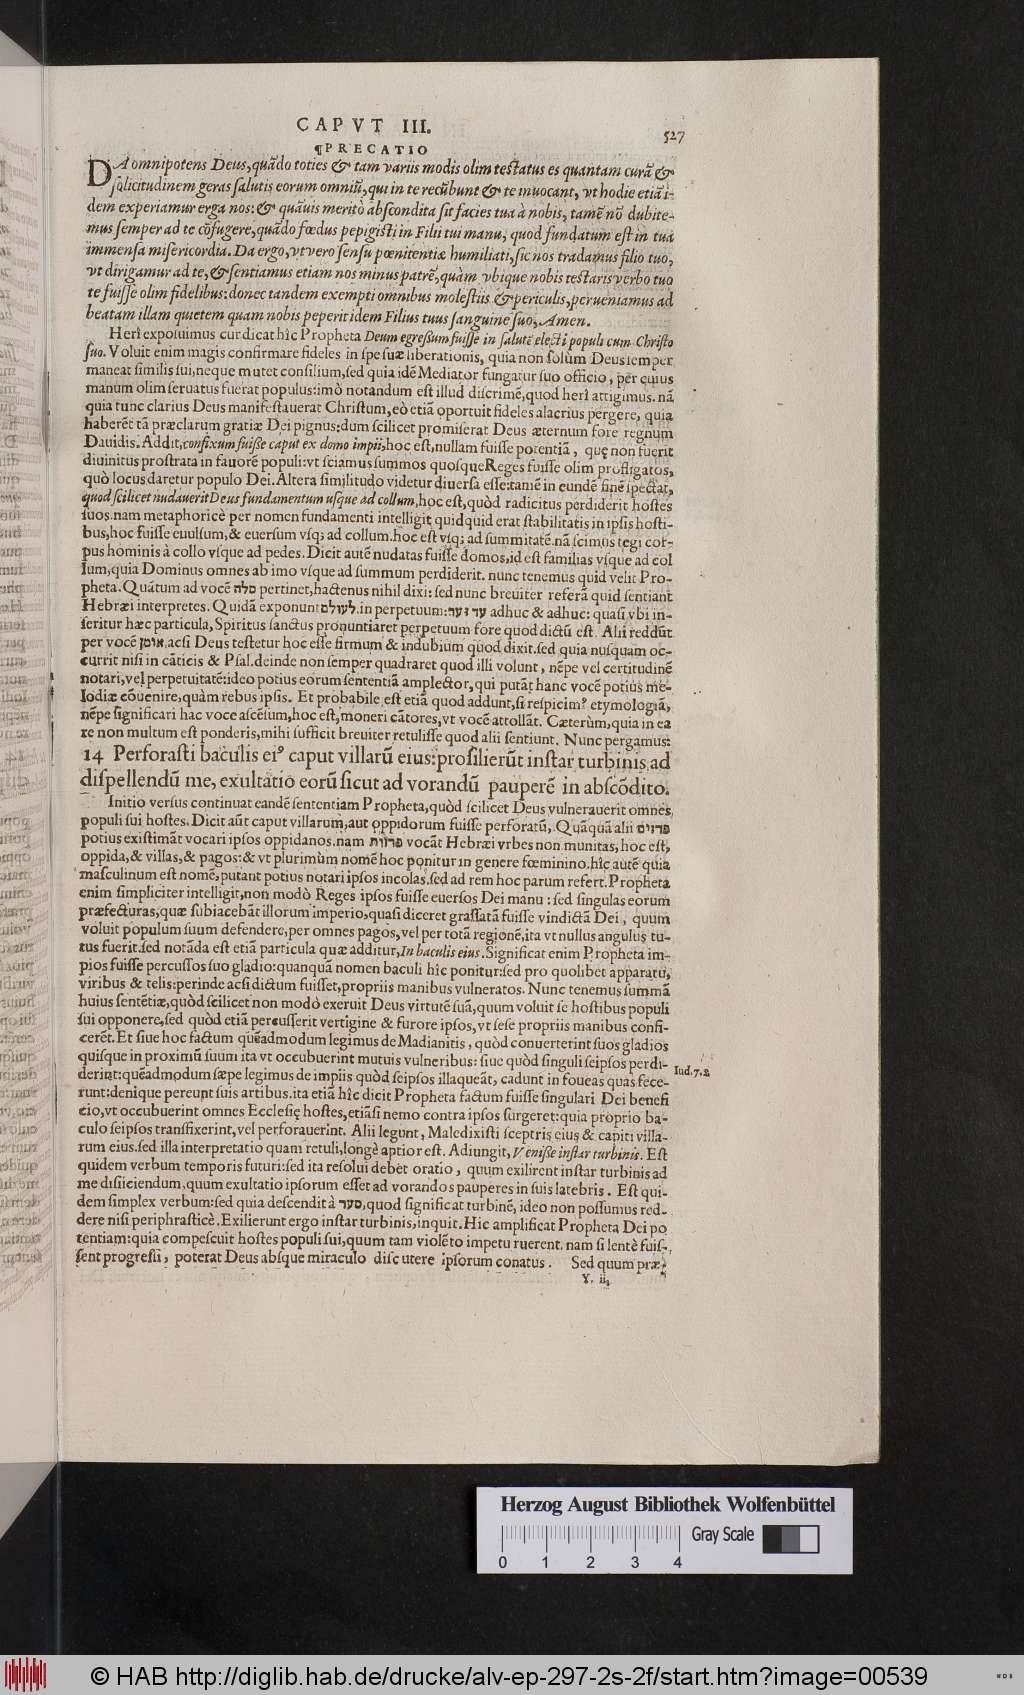 CAPVT III.
527
¶PRECATIO
DA omnipotens Deus, quãdo toties & tam variis modis olim testatus es quantam curã &
ſolicitudinem geras ſalutis eorum omniũ, qui in te recũbunt & te inuocant, vt hodie etiã i-
dem experiamur erga nos: & quãuis meritò abſcondita ſit facies tua à nobis, tamẽ nõ dubite-
mus ſemper ad te cõfugere, quãdo fœdus pepigiſti in Filii tui manu, quod fundatum eſt in tua
immenſa miſericordia. Da ergo, vt vero ſenſu pœnitentiæ humiliati, ſic nos tradamus filio tuo,
vt dirigamur ad te, & ſentiamus etiam nos minus patrẽ, quàm vbique nobis teſtaris verbo tuo
te fuiſſe olim fidelibus: donec tandem exempti omnibus moleſtiis & periculis, perueniamus ad
beatam illam quietem quam nobis peperit idem Filius tuus ſanguine ſuo, Amen.
Herì expoſuimus cur dicat hîc Propheta Deum egreſſum fuiſſe in ſalutẽ electi populi cum Chriſto
ſuo. Voluit enim magis confirmare fideles in ſpe ſuæ liberationis, quia non ſolùm Deus ſemper
maneat ſimilis ſui, neque mutet conſilium, ſed quia idẽ Mediator fungatur ſuo officio, per cuius
manum olim ſeruatus fuerat populus: imò notandum eſt illud diſcrimẽ, quod herì attigimus. nã
quia tunc clarius Deus manifeſtauerat Chriſtum, eò etiã oportuit fideles alacrius pergere, quia
haberẽt tã præclarum gratiæ Dei pignus: dum ſcilicet promiſerat Deus æternum fore regnum
Dauidis. Addit, confixum fuiſſe caput ex domo impii, hoc eſt, nullam fuiſſe potentiã, quę non fuerit
diuinitus proſtrata in fauorẽ populi: vt ſciamus ſummos quoſque Reges fuiſſe olim profligatos,
quò locus daretur populo Dei. Altera ſimilitudo videtur diuerſa eſſe: tamẽ in eundẽ finẽ ſpectat,
quod ſcilicet nudauerit Deus fundamentum uſque ad collum, hoc eſt, quòd radicitus perdiderit hoſtes
ſuos. nam metaphoricè per nomen fundamenti intelligit quidquid erat ſtabilitatis in ipſis hoſti-
bus, hoc fuiſſe euulſum, & euerſum vſq; ad collum. hoc eſt vſq; ad ſummitatẽ. nã ſcimus tegi cor-
pus hominis à collo vſque ad pedes. Dicit autẽ nudatas fuiſſe domos, id eſt familias vſque ad col
lum, quia Dominus omnes ab imo vſque ad ſummum perdiderit. nunc tenemus quid velit Pro-
pheta. Quãtum ad vocẽ סלה pertinet, hactenus nihil dixi: ſed nunc breuiter referã quid ſentiant
Hebræi interpretes. Quidã exponunt לעולם, in perpetuum: עד ועד adhuc & adhuc: quaſi vbi in-
ſeritur hæc particula, Spiritus ſanctus pronuntiaret perpetuum fore quod dictũ eſt. Alii reddũt
per vocẽ אומן, acſi Deus teſtetur hoc eſſe firmum & indubium quod dixit. ſed quia nuſquam oc-
currit niſi in cãticis & Pſal. deinde non ſemper quadraret quod illi volunt, nẽpe vel certitudinẽ
notari, vel perpetuitatẽ: ideo potius eorum ſententiã amplector, qui putãt hanc vocẽ potius me-
lodiæ cõuenire, quàm rebus ipſis. Et probabile eſt etiã quod addunt, ſi reſpicimꝰ etymologiã,
nẽpe ſignificari hac voce aſcẽſum, hoc eſt, moneri cãtores, vt vocẽ attollãt. Cæterùm, quia in ea
re non multum eſt ponderis, mihi ſufficit breuiter retuliſſe quod alii ſentiunt. Nunc pergamus:
14 Perforaſti baculis eiꝰ caput villarũ eius: proſilierũt inſtar turbinis ad
diſpellendũ me, exultatio eorũ ſicut ad vorandũ pauperẽ in abſcõdito.
Initio verſus continuat eandẽ ſententiam Propheta, quòd ſcilicet Deus vulnerauerit omnes
populi ſui hoſtes. Dicit aũt caput villarum, aut oppidorum fuiſſe perforatũ, Quãquã alii פרזים
potius exiſtimãt vocari ipſos oppidanos. nam פרזות vocãt Hebræi vrbes non munitas, hoc eſt,
oppida, & villas, & pagos: & vt plurimùm nomẽ hoc ponitur in genere fœminino. hîc autẽ quia
maſculinum eſt nomẽ, putant potius notari ipſos incolas. ſed ad rem hoc parum refert. Propheta
enim ſimpliciter intelligit, non modò Reges ipſos fuiſſe euerſos Dei manu: ſed ſingulas eorum
præfecturas, quæ ſubiacebãt illorum imperio, quaſi diceret graſſatã fuiſſe vindictã Dei, quum
voluit populum ſuum defendere, per omnes pagos, vel per totã regionẽ, ita vt nullus angulus tu-
tus fuerit. ſed notãda eſt etiã particula quæ additur, In baculis eius. Significat enim Propheta im-
pios fuiſſe percuſſos ſuo gladio: quanquã nomen baculi hîc ponitur: ſed pro quolibet apparatu,
viribus & telis: perinde acſi dictum fuiſſet, propriis manibus vulneratos. Nunc tenemus ſummã
huius ſentẽtiæ, quòd ſcilicet non modò exeruit Deus virtutẽ ſuã, quum voluit ſe hoſtibus populi
ſui opponere, ſed quòd etiã percuſſerit vertigine & furore ipſos, vt ſeſe propriis manibus confi-
cerẽt. Et ſiue hoc factum quẽadmodum legimus de Madianitis, quòd conuerterint ſuos gladios
quiſque in proximũ ſuum ita vt occubuerint mutuis vulneribus: ſiue quòd ſinguli ſeipſos perdi-
derint: quẽadmodum ſæpe legimus de impiis quòd ſeipſos illaqueãt, cadunt in foueas quas fece-
Iud. 7. 2
runt: denique pereunt ſuis artibus. ita etiã hîc dicit Propheta factum fuiſſe ſingulari Dei benefi
cio, vt occubuerint omnes Eccleſię hoſtes, etiãſi nemo contra ipſos ſurgeret: quia proprio ba-
culo ſeipſos transfixerint, vel perforauerint. Alii legunt, Maledixiſti ſceptris eius & capiti villa-
rum eius. ſed illa interpretatio quam retuli, longè aptior eſt. Adiungit, Veniſſe inſtar turbinis. Eſt
quidem verbum temporis futuri: ſed ita reſolui debet oratio, quum exilirent inſtar turbinis ad
me diſiiciendum, quum exultatio ipſorum eſſet ad vorandos pauperes in ſuis latebris. Eſt qui-
dem ſimplex verbum: ſed quia deſcendit à סער, quod ſignificat turbinẽ, ideo non poſſumus red-
dere niſi periphraſticè. Exilierunt ergo inſtar turbinis, inquit. Hic amplificat Propheta Dei po
tentiam: quia compeſcuit hoſtes populi ſui, quum tam violẽto impetu ruerent. nam ſi lentè fuiſ-
ſent progreſſi, poterat Deus abſque miraculo diſcutere ipſorum conatus. Sed quum præ-
Y. ii.
Herzog August Bibliothek Wolfenbüttel
Gray Scale
0 1 2 3 4
© HAB http://diglib.hab.de/drucke/alv-ep-297-2s-2f/start.htm?image=00539